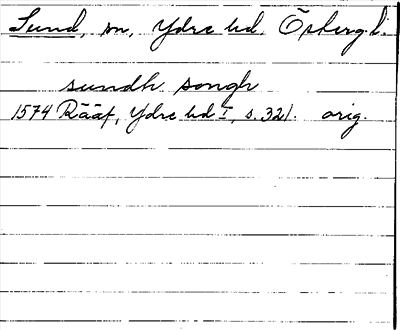 Sund, sn, Ydre hd. Östergl.
sundh songh
1574 Rääf, Ydre hd I, s. 321. orig.